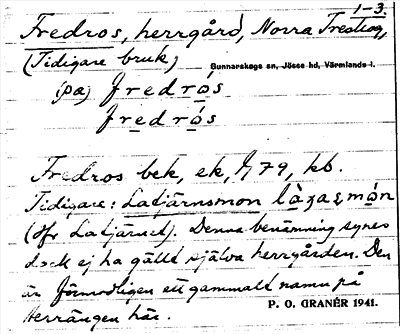 1-3.
Fredros, herrgård, Norra Treskog,
(Tidigare bruk) Gunnarskogs sn, Jösse hd, Värmlands l.
(på) fredrǿs
fredrǿs
Fredros bek, ek, 79, kb.
Tidigare: Latjärnsmon
(öfr Latjärnet). Denna benämning synes
dock ej ha gällt själva herrgården. Den
är förmodligen ett gammalt namn på
terrängen här. P. O. GRANÉR 1941.